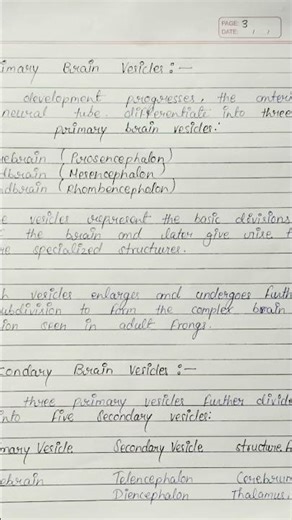 PAGE: 3
DATE: / /
imary Brain Vesicles :—
development progresses, the anteri
neural tube differentiate into three
primary brain vesicles:
rebrain (Prosencephalon)
dbrain (Mesencephalon)
ndbrain (Rhombencephalon)
e vesicles represent the basic divisions
f the brain and later give rise t
re specialized structures.
h vesicles enlarges and undergoes furth
subdivision to form the complex brain
ion seen in adult frongs.
condary Brain Vesicles :—
three primary vesicles further divide
into five secondary vesicles:
mary Vesicle Secondary Vesicle structure f
ebrain Telencephalon Cerebrum
Diencephalon Thalamus,